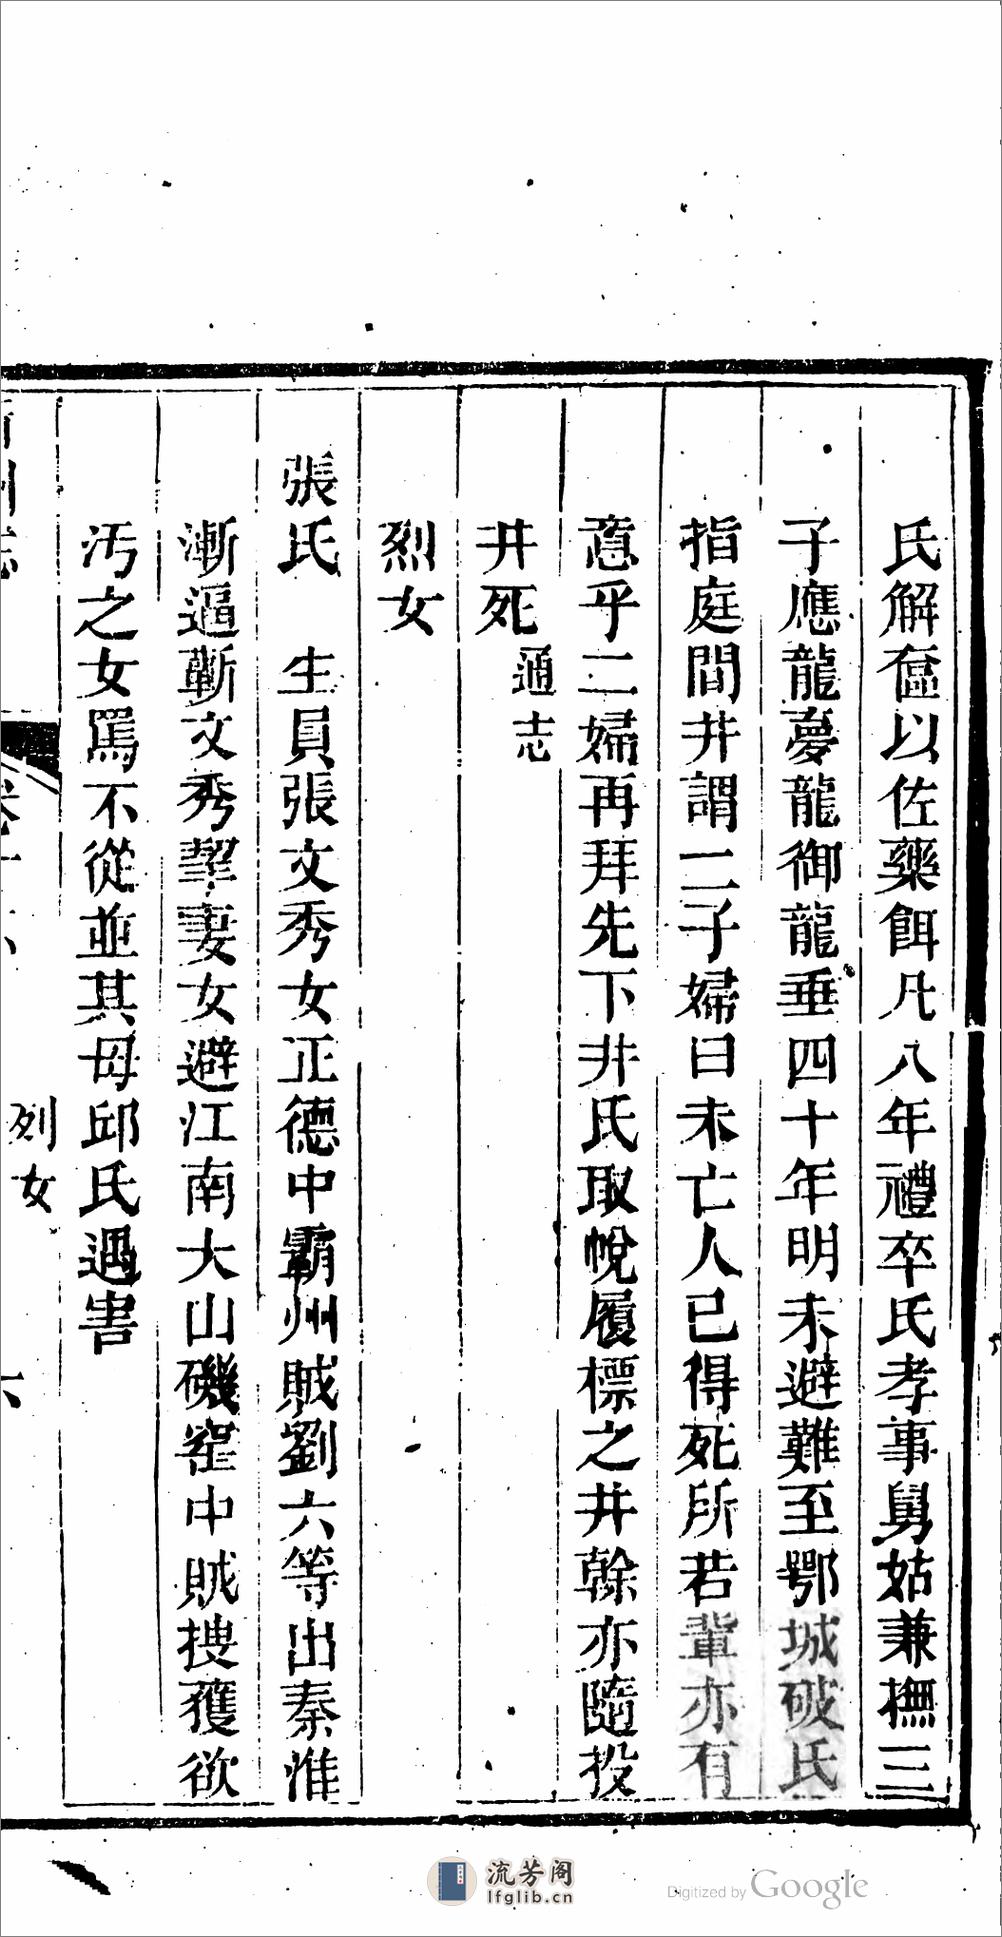 氏解奩以佐藥餌凡八年禮卒氏孝事舅姑兼撫三
子應龍夢龍御龍垂四十年明末避難至鄂城破氏
指庭間井謂二子婦曰未亡人已得死所若輩亦有
意乎二婦再拜先下井氏取帨履標之井榦亦隨投
井死通志
烈女
張氏 生員張文秀女正德中霸州賊劉六等出秦淮
漸逼蘄文秀挈妻女避江南大山磯窑中賊搜獲欲
汚之女罵不從並其母邱氏遇害
州志 卷十
列女 六
流芳阁
lfglib.cn
Digitized by Google